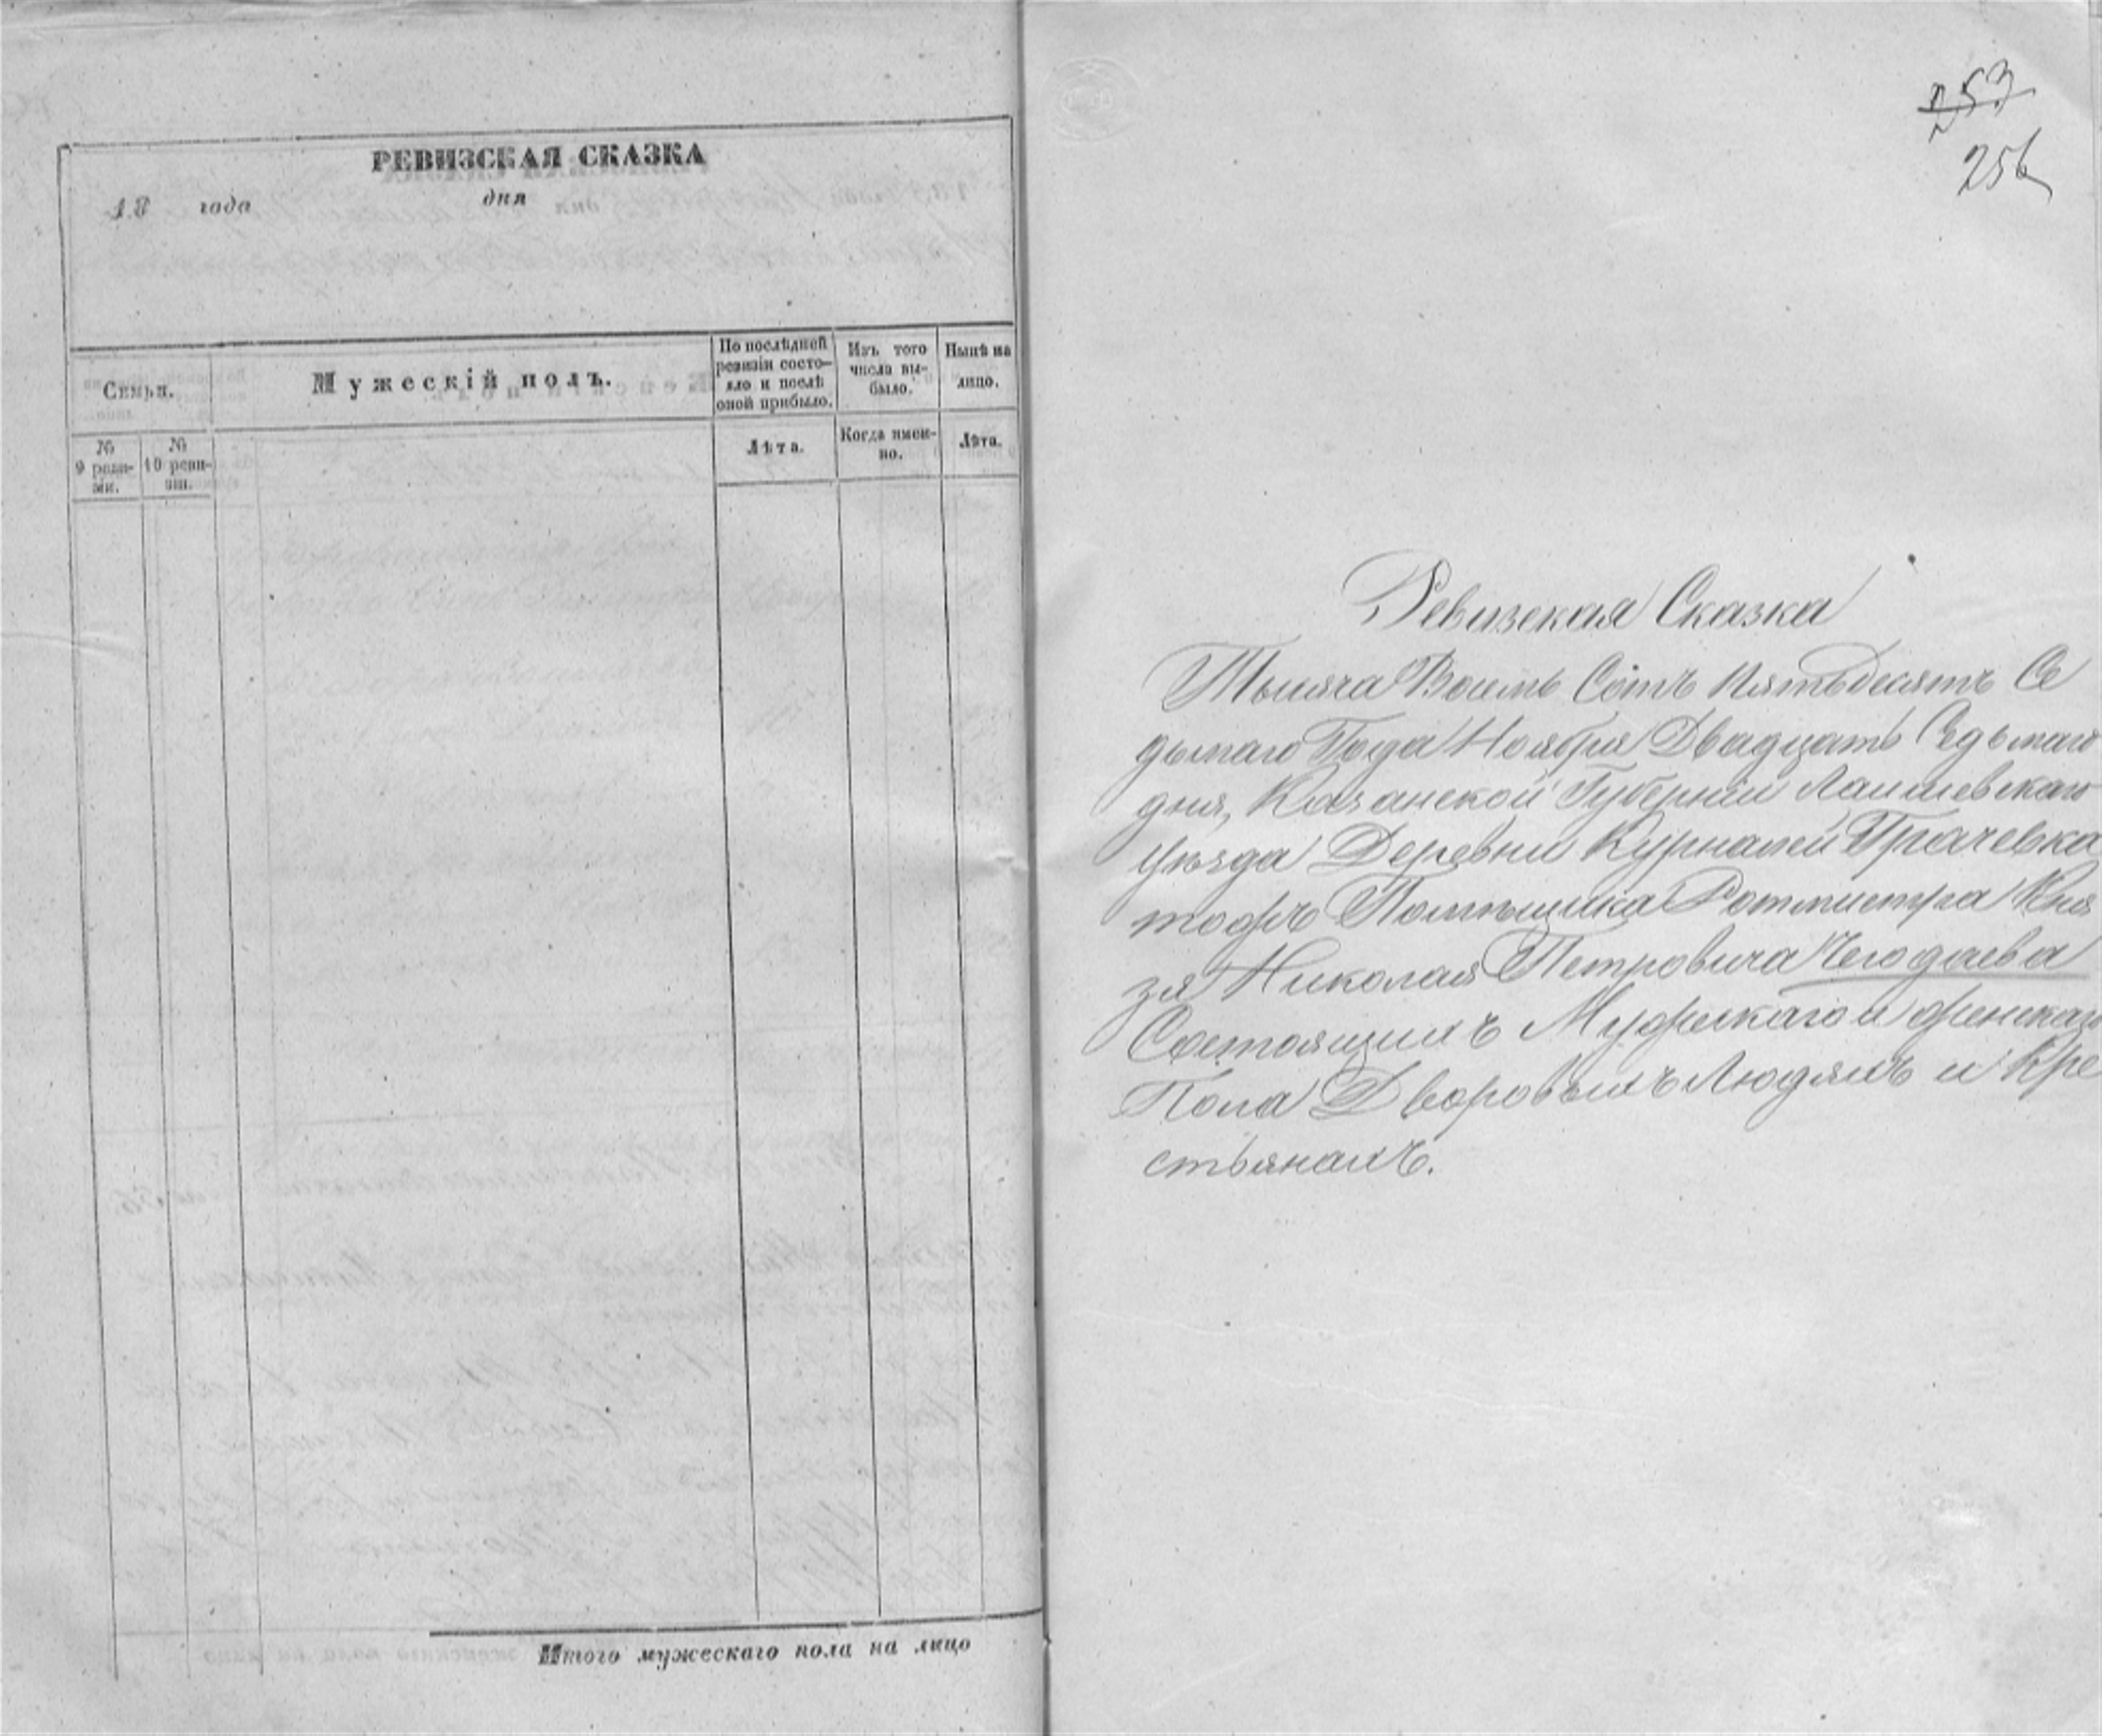 РЕВИЗСКАЯ СКАЗКА
18 года дня
Семьи.
Мужескій полъ.
По послѣдней ревизіи состояло и послѣ оной прибыло.
Изъ того числа выбыло.
Нынѣ на лицо.
№ 9 ревизіи.
№ 10 ревизіи.
Лѣта.
Когда именно.
Лѣта.
Итого мужескаго пола на лицо
253
256
Ревизская Сказка
Тысяча Восемь Сотъ Пятьдесятъ Се
дьмаго Года Ноября Двадцать Седьмаго
дня, Казанской Губерніи Лаишевскаго
Уѣзда Деревни Курналей Грачевка
тожъ Помѣщика Ротмистра Кня
зя Николая Петровича Чегодаева
Состоящихъ Мужескаго и женскаго
Пола Дворовыхъ Людяхъ и Кре
стьянахъ.